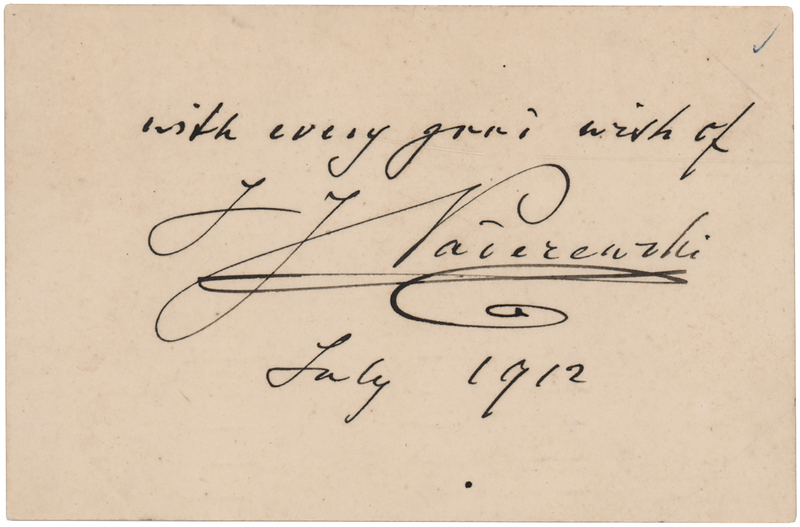 with every good wish of
I J Paderewski
July 1912